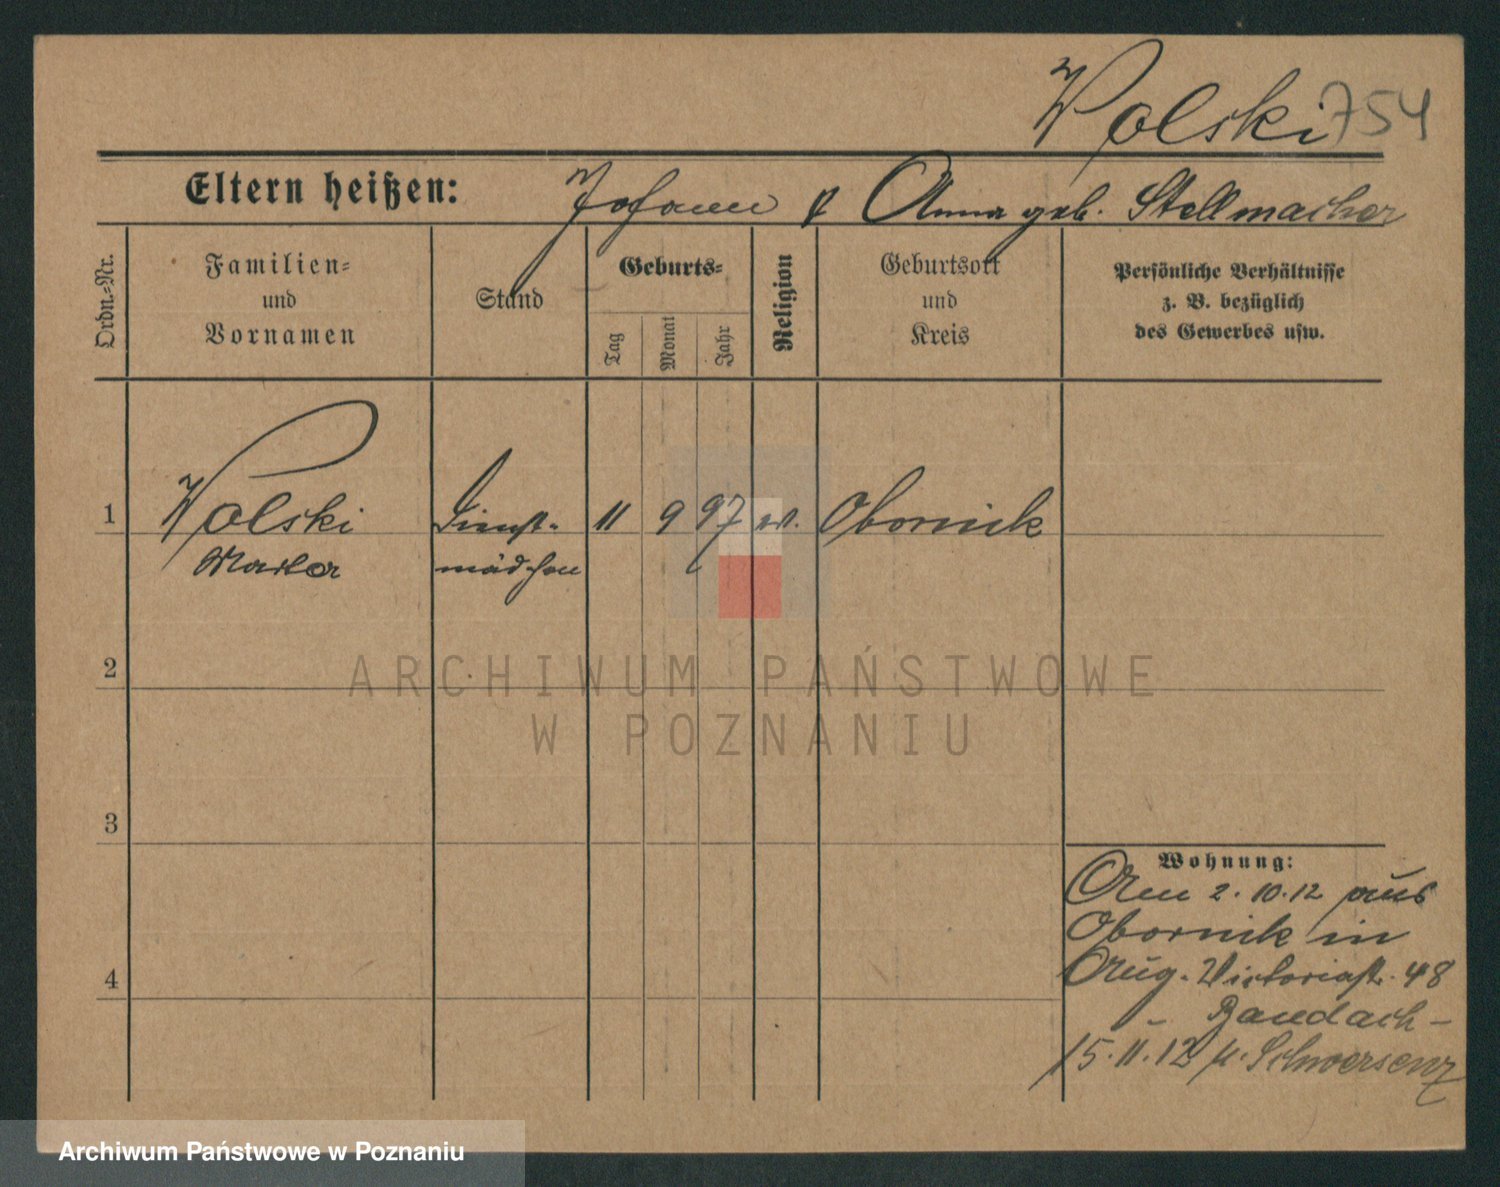 Wolski 754
Eltern heißen: Johann & Anna geb. Stellmacher
Ordn.-Nr.
Familien-
und
Vornamen
Stand
Geburts-
Tag
Monat
Jahr
Religion
Geburtsort
und
Kreis
Persönliche Verhältnisse
z. B. bezüglich
des Gewerbes usw.
1 Wolski Dienst- 11 9 97 ev. Obornik
mädchen
2
3
4
Wohnung:
Am 2.10.12 aus
Obornik in
Aug. Victoriast. 48
- Bandach -
15.11.12 n. Schwersenz
ARCHIWUM PAŃSTWOWE
W POZNANIU
Archiwum Państwowe w Poznaniu